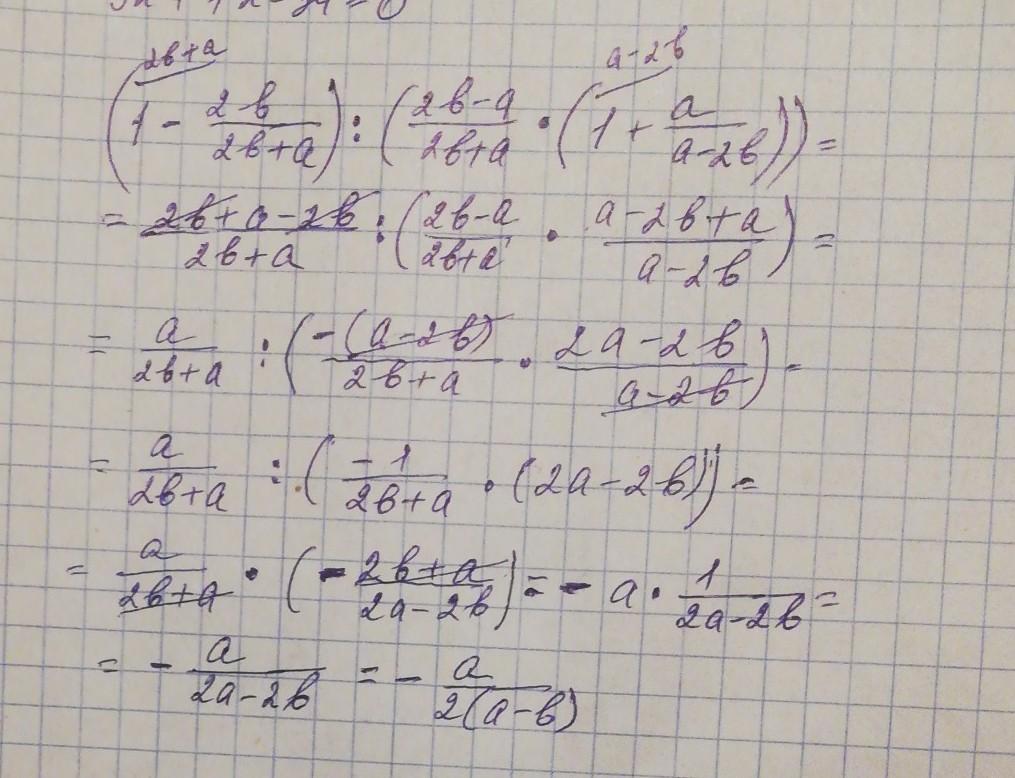 2b+a a-2b
(1 - 2b/(2b+a)) : ((2b-a)/(2b+a) · (1 + a/(a-2b))) =
= (2b+a-2b)/(2b+a) : ((2b-a)/(2b+a) · (a-2b+a)/(a-2b)) =
= a/(2b+a) : (-(a-2b)/(2b+a) · (2a-2b)/(a-2b)) -
= a/(2b+a) : (-1/(2b+a) · (2a-2b)) =
= a/(2b+a) · (-(2b+a)/(2a-2b)) = - a · 1/(2a-2b) =
= - a/(2a-2b) = - a/(2(a-b))